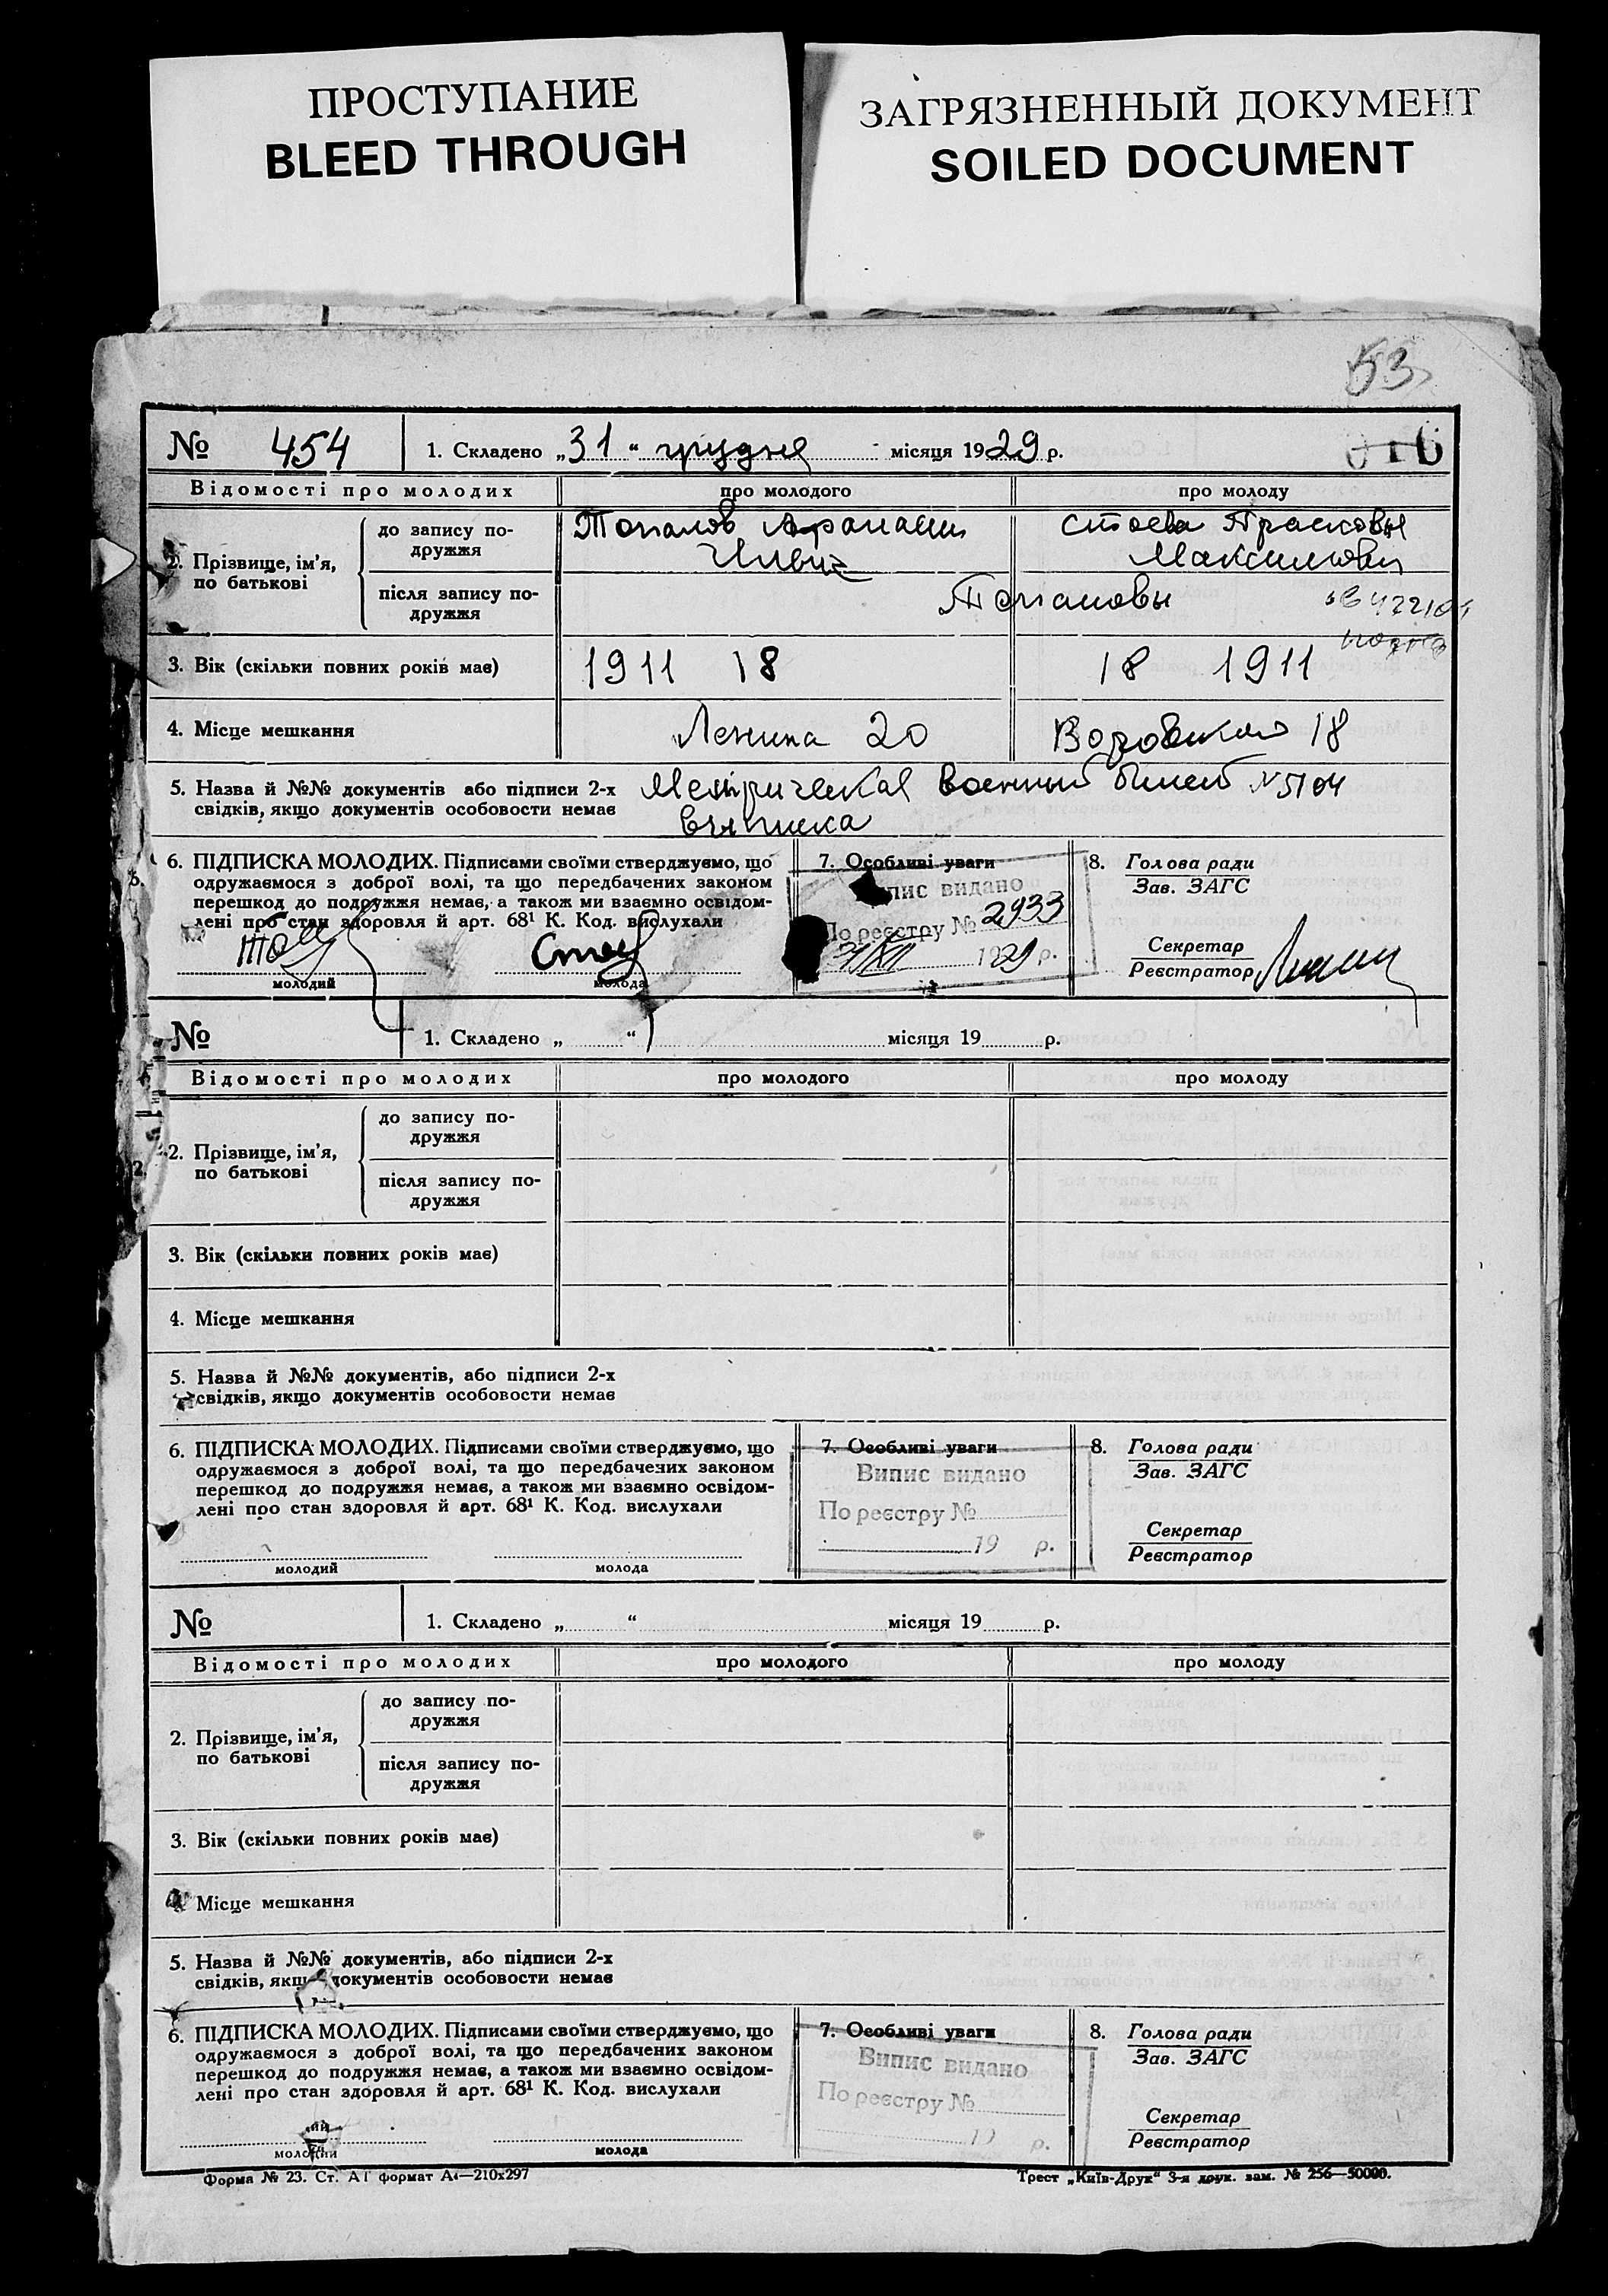 ПРОСТУПАНИЕ
BLEED THROUGH
ЗАГРЯЗНЕННЫЙ ДОКУМЕНТ
SOILED DOCUMENT
53
№ 454 1. Складено „31“ грудня місяця 1929 р.
Відомості про молодих про молодого про молоду
2. Прізвище, ім’я, по батькові
до запису по-
дружжя
Топалов Афанасий
Ильич
Стоева Прасковья
після запису по-
дружжя
Топаловы
3. Вік (скільки повних років має) 1911 18 18 1911
4. Місце мешкання Ленина 20 Воровского 18
5. Назва й №№ документів або підписи 2-х
свідків, якщо документів особовости немає
Метрическая военный билет N 5104
выписка
6. ПІДПИСКА МОЛОДИХ. Підписами своїми стверджуємо, що
одружаємося з доброї волі, та що передбачених законом
перешкод до подружжя немає, а також ми взаємно освідом-
лені про стан здоровля й арт. 68¹ К. Код. вислухали
молодий молода
7. Особливі уваги
пис видано
По реєстру № 2933
31/XII 1929 р.
8. Голова ради
Зав. ЗАГС
Секретар
Реєстратор
№ 1. Складено „ “ місяця 19 р.
Відомості про молодих про молодого про молоду
2. Прізвище, ім’я,
по батькові
до запису по-
дружжя
після запису по-
дружжя
3. Вік (скільки повних років має)
4. Місце мешкання
5. Назва й №№ документів, або підписи 2-х
свідків, якщо документів особовости немає
6. ПІДПИСКА МОЛОДИХ. Підписами своїми стверджуємо, що
одружаємося з доброї волі, та що передбачених законом
перешкод до подружжя немає, а також ми взаємно освідом-
лені про стан здоровля й арт. 68¹ К. Код. вислухали
молодий молода
7. Особливі уваги
Випис видано
По реєстру №
19 р.
8. Голова ради
Зав. ЗАГС
Секретар
Реєстратор
№ 1. Складено „ “ місяця 19 р.
Відомості про молодих про молодого про молоду
2. Прізвище, ім’я,
по батькові
до запису по-
дружжя
після запису по-
дружжя
3. Вік (скільки повних років має)
Місце мешкання
5. Назва й №№ документів, або підписи 2-х
свідків, якщо документів особовости немає
6. ПІДПИСКА МОЛОДИХ. Підписами своїми стверджуємо, що
одружаємося з доброї волі, та що передбачених законом
перешкод до подружжя немає, а також ми взаємно освідом-
лені про стан здоровля й арт. 68¹ К. Код. вислухали
молодий молода
7. Особливі уваги
Випис видано
По реєстру №
р.
8. Голова ради
Зав. ЗАГС
Секретар
Реєстратор
Форма № 23. Ст. АІ формат А4—210х297
Трест „Київ-Друк“ 3-я друк. зам. № 256—50000.